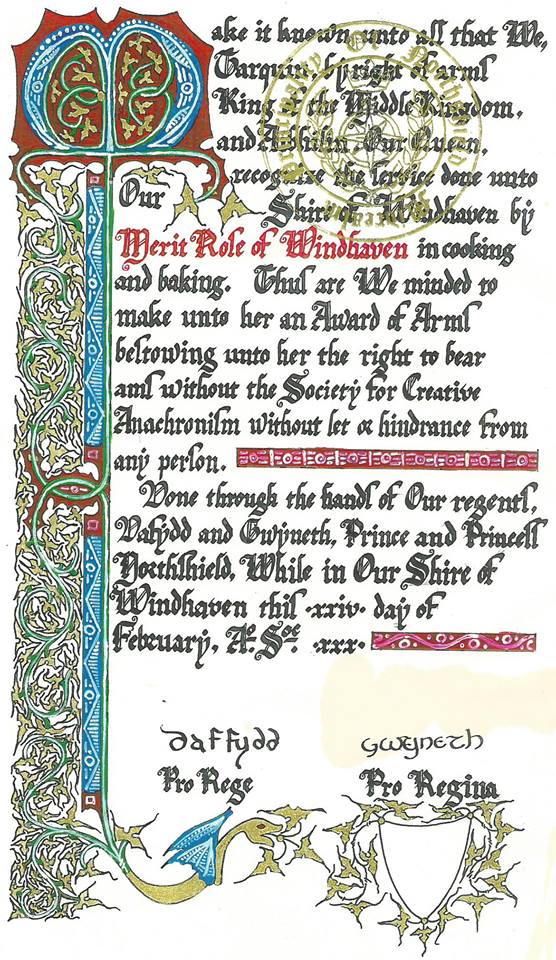 Make it known unto all that We,
Tarquin, by right of arms
King of the Middle Kingdom,
and Aibilin Our Queen,
recognize the service done unto
Our Shire of Windhaven by
Merit Role of Windhaven in cooking
and baking. Thus are We minded to
make unto her an Award of Arms
bestowing unto her the right to bear
ams without the Society for Creative
Anachronism without let or hindrance from
any person.
Done through the hands of Our regents,
Dafydd and Gwyneth, Prince and Princess
Northshield, While in Our Shire of
Windhaven this ·xxiv· day of
February, A. Soc. ·xxx·
Daffydd
Gwyneth
Pro Rege
Pro Regina
Of Northshield